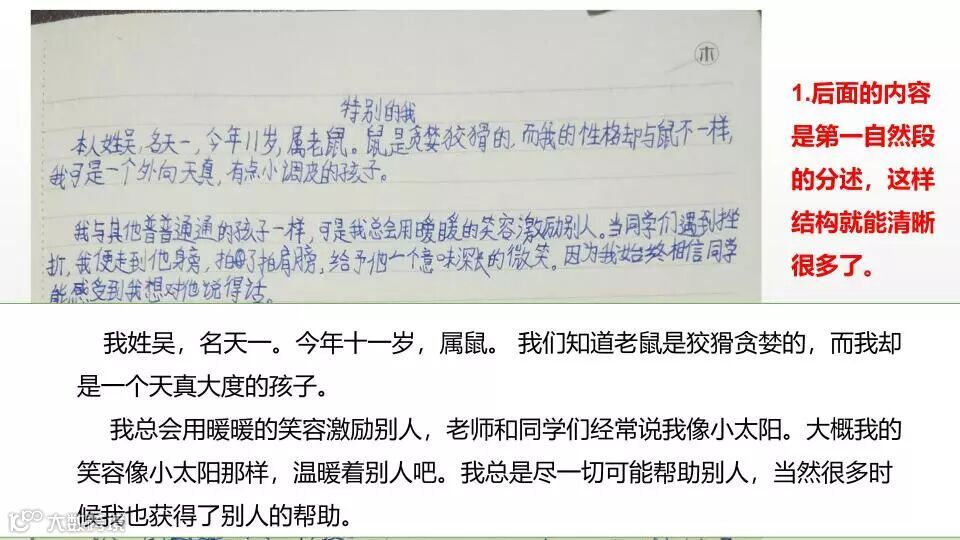 木
特别的我
本人姓吴，名天一，今年11岁，属老鼠。鼠是贪婪狡猾的，而我的性格却与鼠不一样，
我可是一个外向天真，有点小调皮的孩子。
我与其他普普通通的孩子一样，可是我总会用暖暖的笑容激励别人。当同学们遇到挫
折，我便走到他身旁，拍了拍肩膀，给予他一个意味深长的微笑。因为我始终相信同学
能感受到我想对他说得话。
1.后面的内容
是第一自然段
的分述，这样
结构就能清晰
很多了。
我姓吴，名天一。今年十一岁，属鼠。 我们知道老鼠是狡猾贪婪的，而我却
是一个天真大度的孩子。
我总会用暖暖的笑容激励别人，老师和同学们经常说我像小太阳。大概我的
笑容像小太阳那样，温暖着别人吧。我总是尽一切可能帮助别人，当然很多时
候我也获得了别人的帮助。
大数跨境